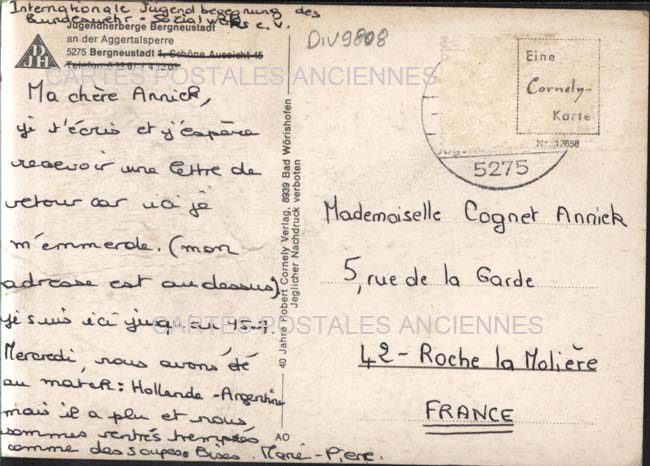 Internationale Jugendbegegnung des
Bundeswehr-Sozialwerks e.V.
Jugendherberge Bergneustadt
an der Aggertalsperre
5275 Bergneustadt 1, Schöne Aussicht 45
DJH
DIV9808
CARTES POSTALES ANCIENNES
Ma chère Annick,
j't'écris et j'espère
recevoir une lettre de
retour car ici je
m'emmerde. (mon
adresse est au dessus)
j'suis ici jusqu'au 15-7.
Mercredi, nous avons été
au match: Hollande-Argentine
mais il a plu et nous
sommes rentrés trempés
comme des soupes. Bises. Marie-Pierre.
40 Jahre Robert Cornely Verlag, 8939 Bad Wörishofen
Jeglicher Nachdruck verboten
AO
Eine
Cornely-
Karte
Nr. 12658
5275
Mademoiselle Cognet Annick
5, rue de la Garde
CARTES POSTALES ANCIENNES
42 - Roche la Molière
FRANCE